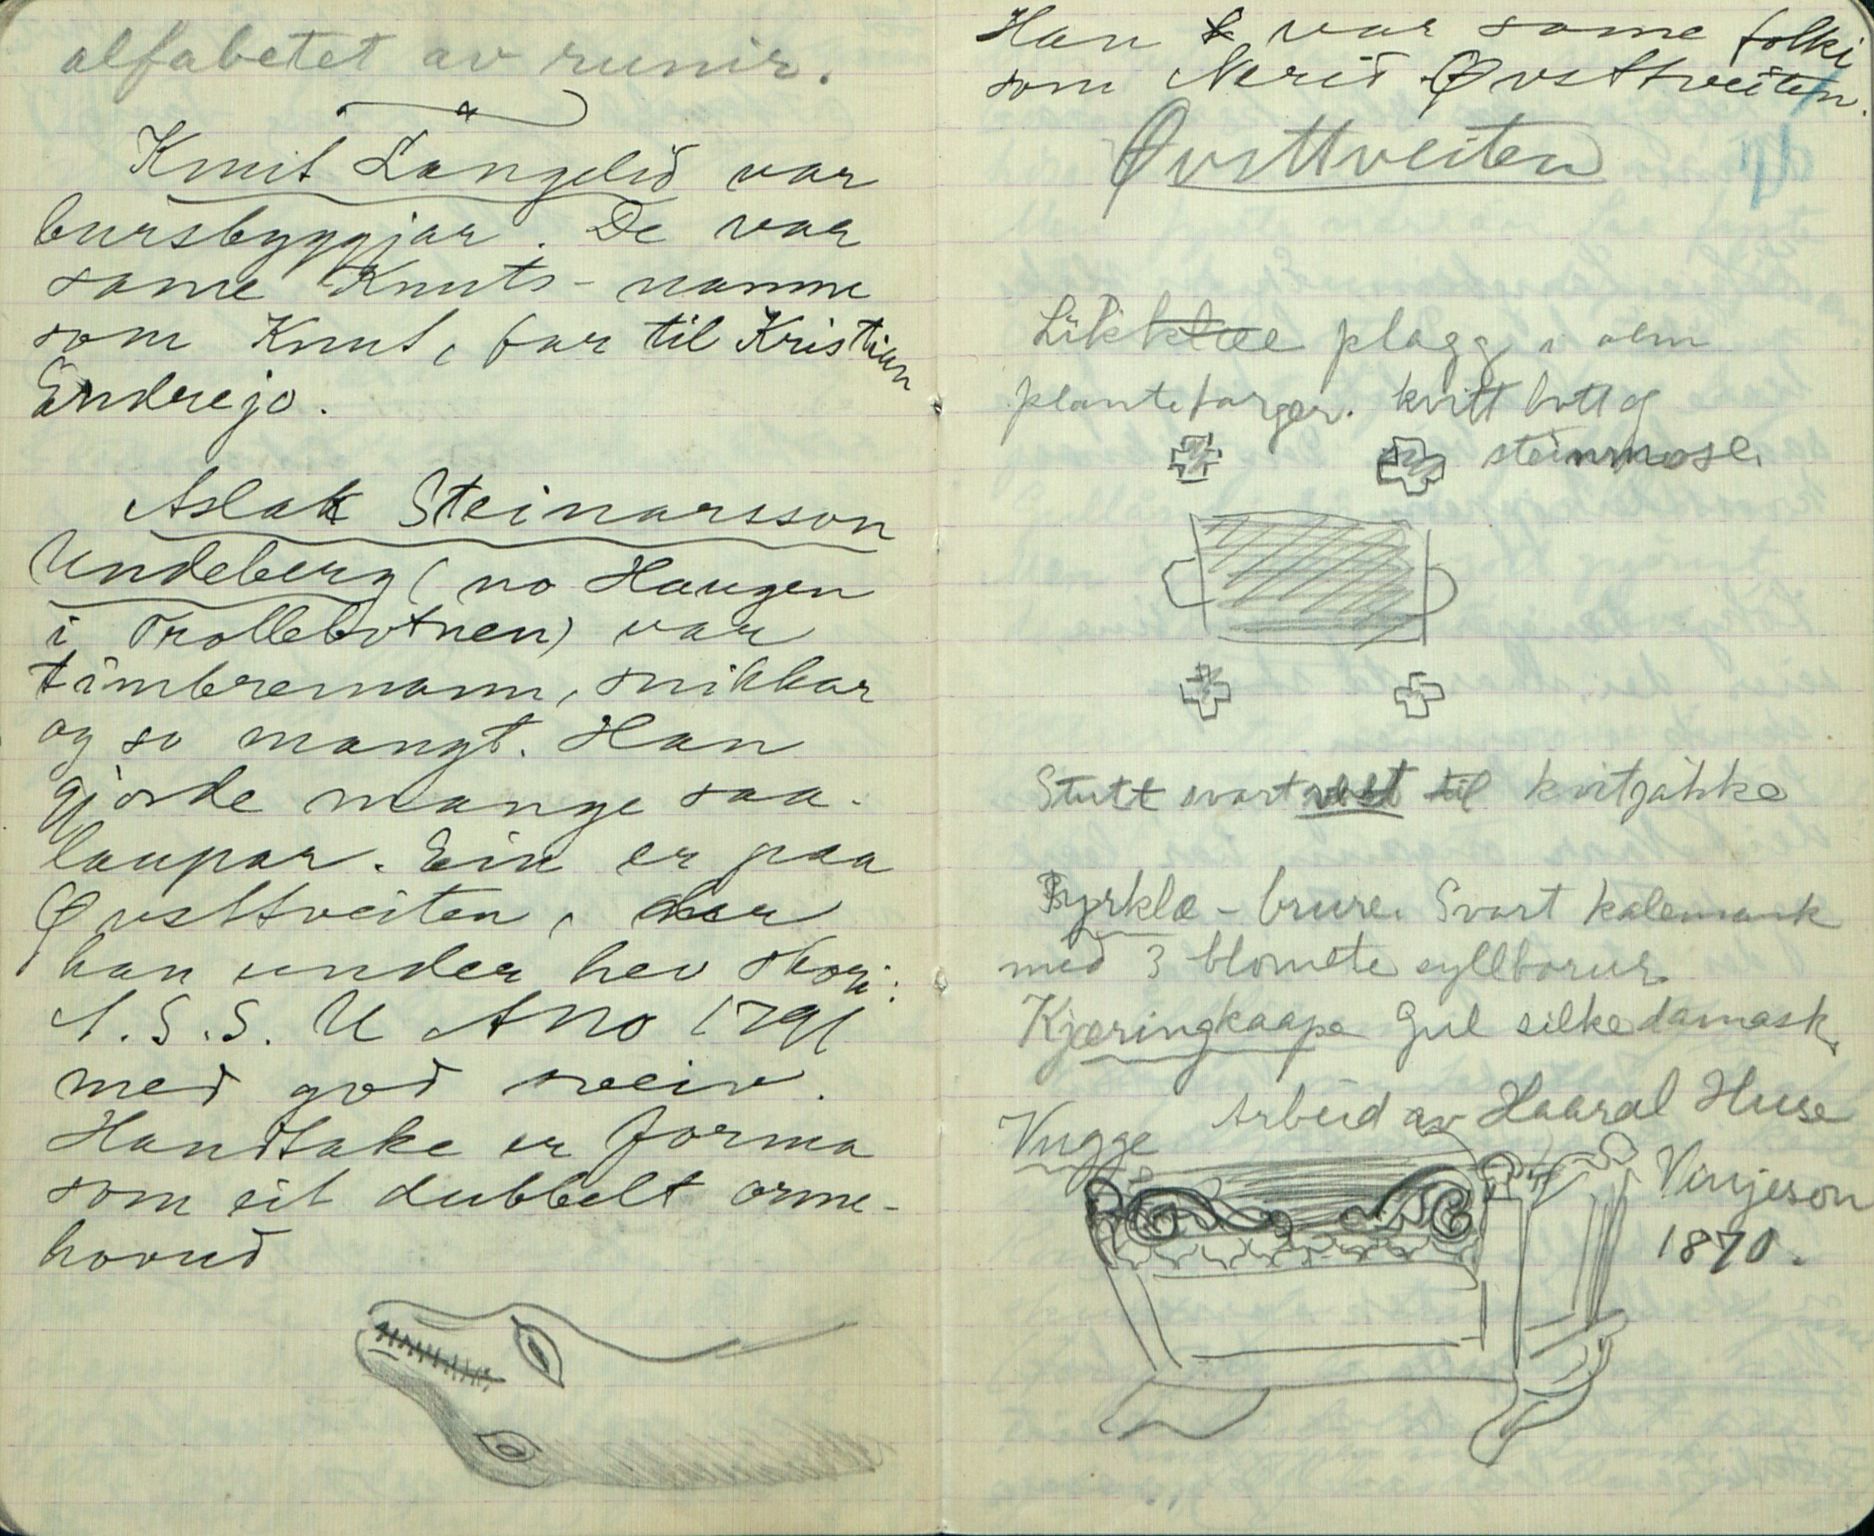 alfabetet av runir.
Knut Langelid var
bursbyggjar. De var
same Knuts-namne
som Knut, far til Kristian
Endrejo.
Aslak Steinarsson
Undeberg (no Haugen
i Trollebotnen) var
timbremann, snikkar
og so mangt. Han
gjorde mange saa-
laupar. Ein er paa
Øvsttveiten, der
han under hev skori:
A.S.S. U Ano 1791
med god sveiv.
Handtake er forma
som eit dubbelt orme-
hovud
Han var same folki
som Neri Øvsttveiten.
Øvsttveiten
Likklæe plagg, i alm
plantefarger. kvitt bott og
steinmose.
Stutt svart vest til kvitjakke
Byrklæ - brure. Svart kalemank
med 3 blomete syllborur
Kjæringkaape Gul silkedamask
Vugge Arbeid av Haaral Huse
Vinjeson
1870.